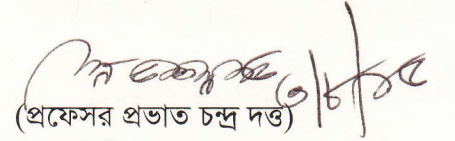 ৩/৮/১৫
(প্রফেসর প্রভাত চন্দ্র দত্ত)